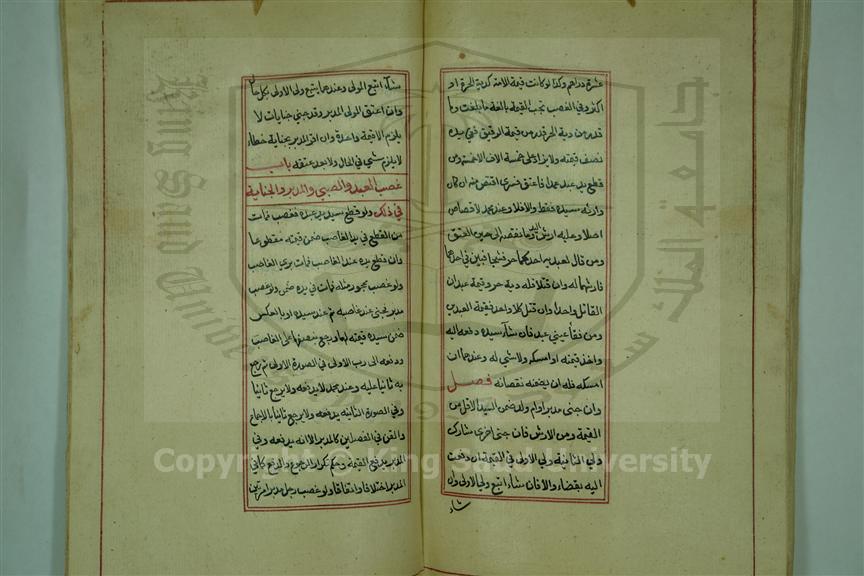 عشرة دراهم وكذا لو كانت قيمة الامة كدية الحرة او
اكثر وفي الغصب تجب القيمة بالغة ما بلغت وما
قدر من دية الحر قدر من قيمة الرقيق ففي يده
نصف قيمته ولا يزاد على خمسة الاف الا خمسة ومن
قطع يد عبد عمدا فاعتق فسرى اقتص منه ان كان
وارثه سيده فقط والا فلا وعند محمد لا قصاص
اصلا وعليه ارش اليد وما نقصه الى حين العتق
ومن قال لعبديه احدكما حر فشجا فبين في احدهما
فارشهما له وان قتلا فله دية حر وقيمة عبد ان
القاتل واحدا وان قتل كلا واحد فقيمة العبدين
ومن فقأ عيني عبد فان شاء سيده دفعه اليه
واخذ قيمته او امسكه ولا شي له وعندهما ان
امسكه فله ان يضمنه نقصانه فصل
وان جنى مدبر او ام ولد ضمن السيد الاقل من
القيمة ومن الارش فان جنى اخرى شارك
ولي الثانية ولي الاولى في القيمة ان دفعت
اليه بقضاء والا فان شاء اتبع ولي الاولى وان
شاء
شاء اتبع المولى وعندهما يتبع ولي الاولى بكل حال
وان اعتق المولى المدبر وقد جنى جنايات لا
يلزم الا قيمة واحدة وان اقر المدبر بجناية خطاء
لا يلزم شي في الحال ولا بعد عتقه باب
غصب العبد والصبي والمدبر والجناية
في ذلك ولو قطع سيد يد عبده فغصب فمات
من القطع في يد الغاصب ضمن قيمته مقطوعا
وان قطع يده عند الغاصب فمات برئ الغاصب
ولو غصب محجور مثله فمات في يده ضمن ولو غصب
مدبر فجنى عند غاصبه ثم عند سيده او بالعكس
ضمن سيده قيمته لهما ورجع بنصفها على الغاصب
ودفعه الى رب الاولى في الصورة الاولى ثم رجع
به ثانيا عليه وعند محمد لا يدفعه ولا يرجع ثانيا
وفي الصورة الثانية يدفعه ولا يرجع ثانيا بالاجماع
والقن في الفصلين كالمدبر الا انه يدفعه وفي
المدبر يدفع القيمة وحكم تكرار الرجوع والدفع كما في
المدبر اختلافا واتفاقا ولو غصب رجل مدبرا مرتين
Copyright © King Saud University
King Saud University
جامعة الملك سعود